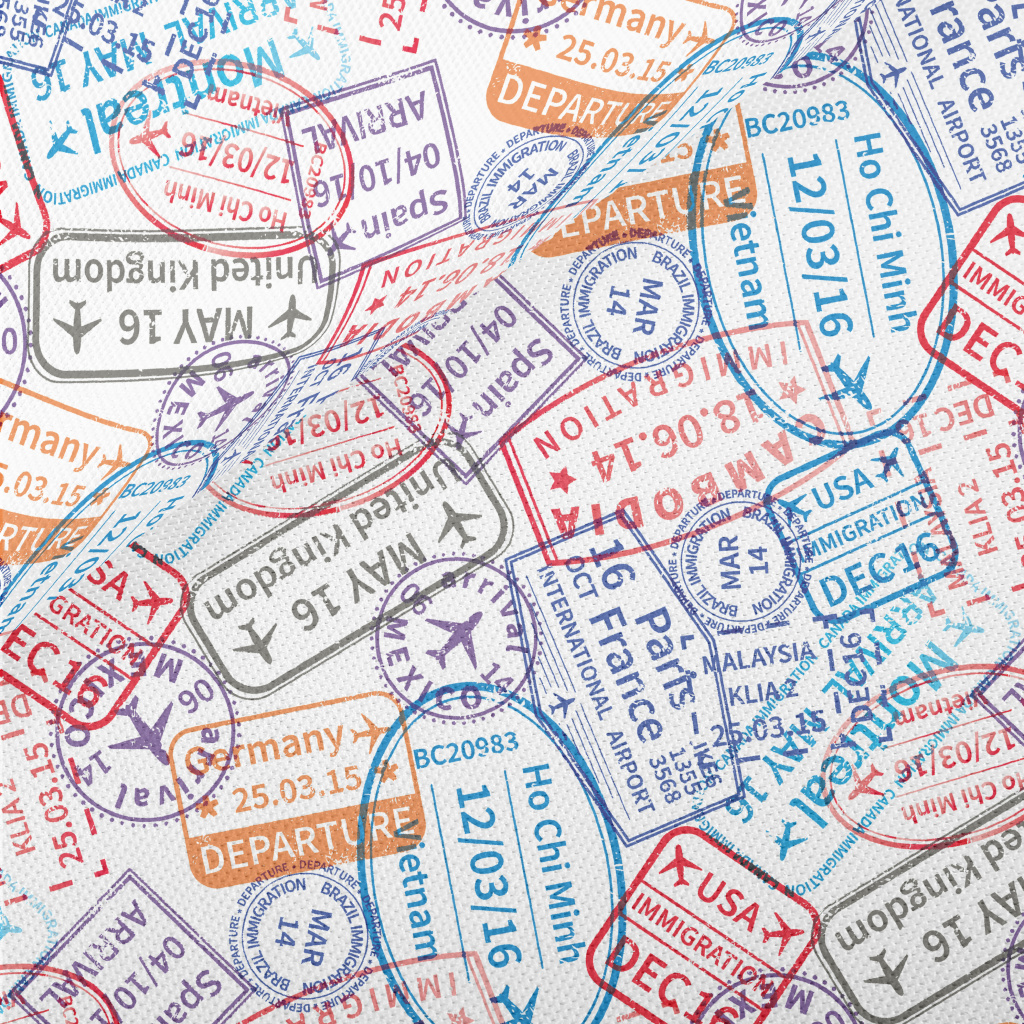 Montreal
MAY 16
CANADA IMMIGRATION
Vietnam
12/03/16
Ho Chi Minh
BC20983
ARRIVAL
04/10/16
Spain
Germany
25.03.15
DEPARTURE
DEPARTURE • DEPARTURE
BRAZIL IMMIGRATION
MAR
14
BC20983
Ho Chi Minh
12/03/16
Vietnam
INTERNATIONAL AIRPORT
3568
United Kingdom
MAY 16
IMMIGRATION
18.06.14
CAMBODIA
04/10/16
Spain
BRAZIL IMMIGRATION
MAR
14
DEPARTURE • DEPARTURE
06
MEXICO
BC20983
12/03/16
Ho Chi Minh
United Kingdom
MAY 16
arrival
06
14
MEXICO
USA
IMMIGRATION
DEC 16
BRAZIL IMMIGRATION
MAR
14
DEPARTURE • DEPARTURE
Paris
France
16
OCT
INTERNATIONAL AIRPORT
1355
3568
MALAYSIA
KLIA2
25.03.15
ARRIVAL
Montreal
MAY 16
CANADA IMMIGRATION
Vietnam
12/03/16
Ho Chi Minh
USA
IMMIGRATION
DEC 16
arrival
06
14
MEXICO
KLIA2
25.03.15
Germany
25.03.15
DEPARTURE
BC20983
Ho Chi Minh
12/03/16
Vietnam
DEPARTURE • DEPARTURE
BRAZIL IMMIGRATION
MAR
14
USA
IMMIGRATION
DEC 16
United Kingdom
MAY 16
ARRIVAL
04/10/16
Spain